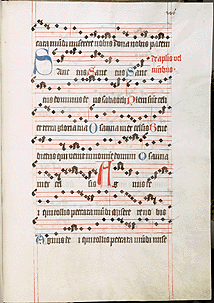 cata mũdi miserere nobis dona nobis pacem
Sanc tus Sanctus Sanc
tus dominus de us sabaoth Pleni sunt celi
et terra gloria tua Osanna in excelsis Bene
dictus qui venit in nomine domini Osanna
in ex cel sis Agnus de
i qui tollis peccata mũdi miserere no bis
Agnus de i qui tollis peccata mũdi mise